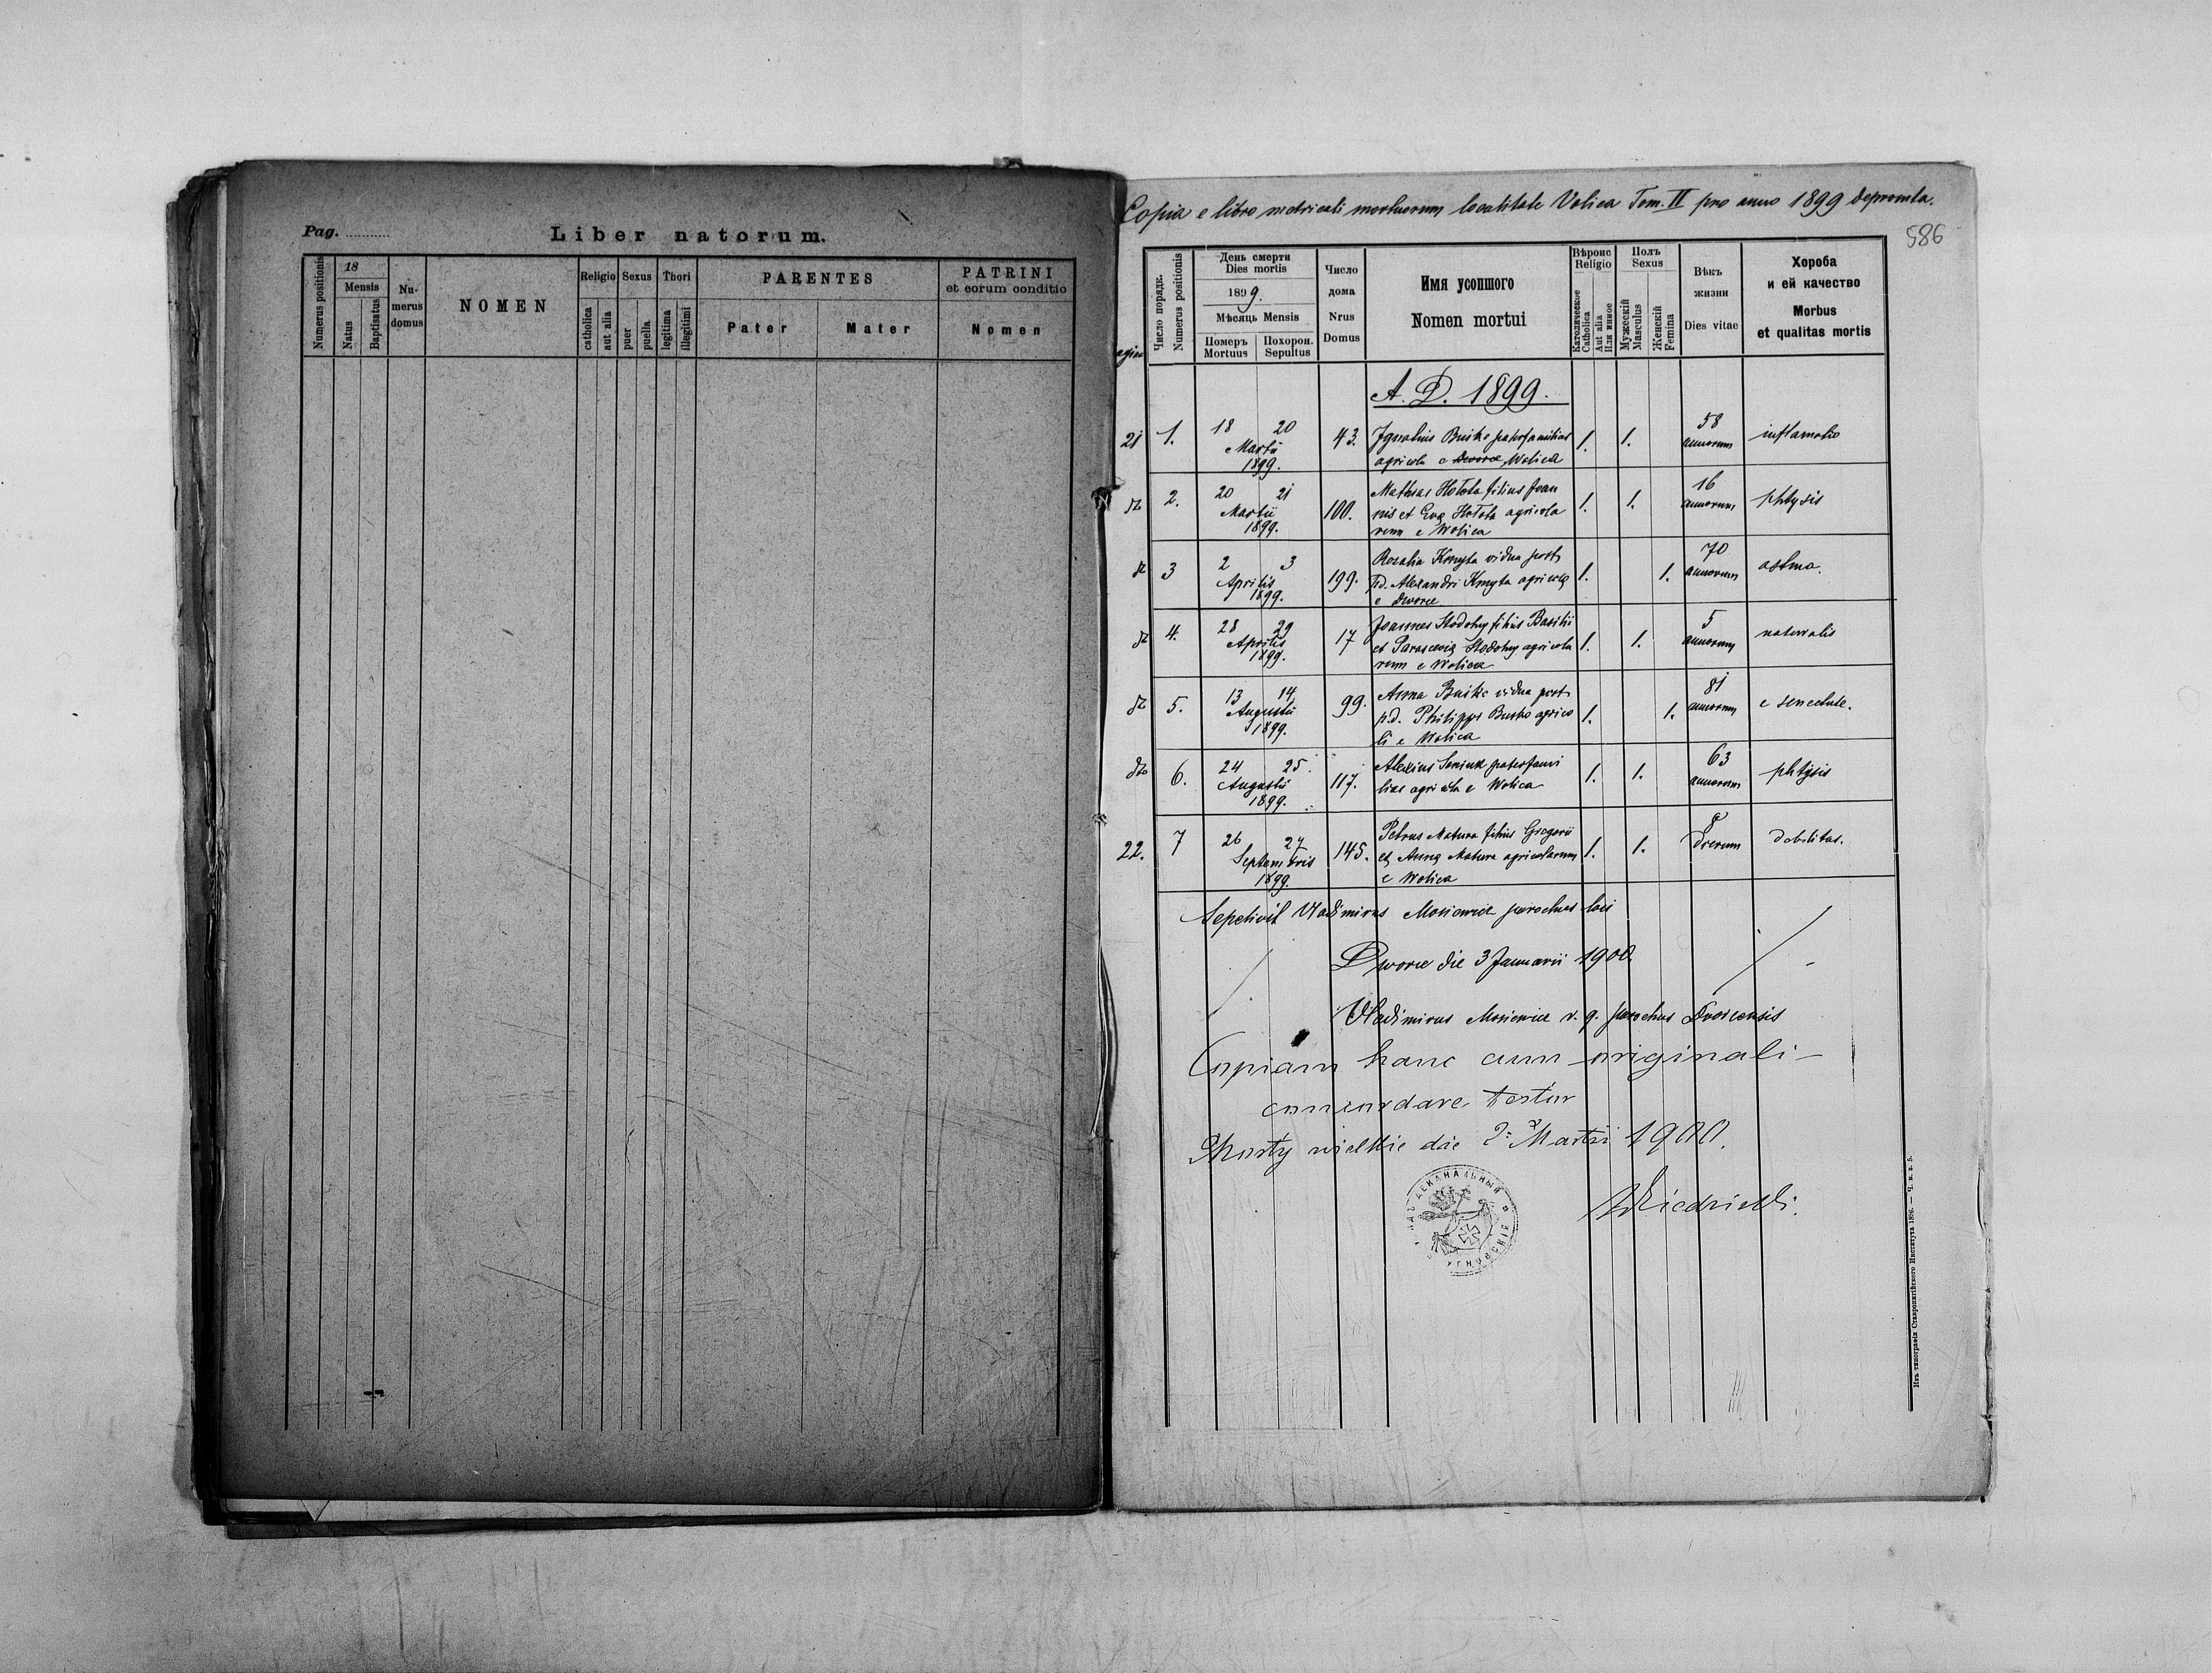 Pag. ..........
Liber natorum.
Numerus positionis
18
Mensis
Natus
Baptisatus
Nu-
merus
domus
NOMEN
Religio
catholica
aut alia
Sexus
puer
puella
Thori
legitima
illegitimi
PARENTES
Pater
Mater
PATRINI
et eorum conditio
Nomen
Copia e libro metricali mortuorum localitate Volica Tom. II pro anno 1899 deprompta.
586
Число порядк.
Numerus positionis
День смерти
Dies mortis
1899.
Мѣсяць Mensis
Померъ
Mortuus
Похорон.
Sepultus
Число
дома
Nrus
Domus
Имя усопшого
Nomen mortui
Вѣроис
Religio
Католическое
Catholica
Aut alia
Или инное
Полъ
Sexus
Мужескій
Masculus
Женскій
Femina
Вѣкъ
жизни
Dies vitae
Хороба
и ей качество
Morbus
et qualitas mortis
A. D. 1899.
21 1. 18 20 Martii 1899. 43. Ignatius Busko paterfamilias 1. 1. 58 annorum inflamatio
agricola e Dworce Wolica
2. 20 21 Martii 1899. 100. Mathias Hołota filius Joan 1. 1. 16 annorum phtysis
nis et Eva Hołota agricola
rum e Wolica
3 2 3 Aprilis 1899. 199. Rozalia Kmyta vidua post 1. 1. 70 annorum astma.
p.d. Alexandri Kmyta agricolę
e Dworce
4. 28 29 Aprilis 1899. 17 Joannes filius Basilii 1. 1. 5 annorum naturalis
et agricola
rum e Wolica
5. 13 14 Augusti 1899. 99. Anna Busko vidua post 1. 1. 81 annorum e senectute.
p.d. Philippi Busko agrico
li e Wolica
6. 24 25. Augusti 1899. 117. Alexius Seniuk paterfami 1. 1. 63 annorum phtysis
lias agricola e Wolica
22. 7 26 27 Septembris 1899. 145. Petrus Matura filius Gregorii 1. 1. dierum debilitas.
et Anna Matura agricolarum
e Wolica
Sepelivit Vladimirus Mosiewicz parochus loci
Dworce die 3 Januarii 1900
Vladimirus Mosiewicz r. g. parochus Dworcensis
Copiam hanc cum originali
concordare testor
Mosty wielkie die 2 Martii 1900.
ДЕКАНАЛЬНЫЙ
Изъ типографіи Ставропигійского Института 1896. — Ч. х. в. 5.